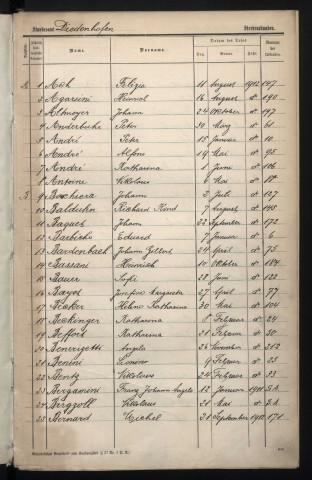 Standesamt Diedenhofen Sterberegister
Name. Vorname. Datum des Todes Nummer
Tag. Monat. Jahr.
A 1 Ach Felizia 11 August 1902 147
2 Agarini Heinrich 16 August d° 190
3 Altmeyer Johann 24 Oktober d° 197
4 Anderbuhr Peter 30 März d° 61
5 André Peter 15 Januar d° 10
6 André Alfons 19 Mai d° 95
7 André Katharina 1 Juni d° 106
8 Antoine Nikolaus 6 Mai d° 88
B 9 Johann 2 Juli d° 127
10 Balduhn Richard Kind 7 August d° 145
11 Baques Johann 22 September d° 172
12 Barbiche Eduard 7 Januar d° 6
13 Bardenbach Johann 24 April d° 75
14 Bassani Heinrich 10 Oktober d° 184
15 Bauer Sofie 28 Juni d° 122
16 Bayot Josefine Augusta 27 April d° 77
17 Becker Helene Katharina 30 Mai d° 104
18 Beckinger Katharina 1 Februar d° 24
19 Beffort Katharina 21 Februar d° 30
20 Benerigetti Angelo 26 November d° 212
21 Benini 9 Februar d° 23
22 Bentz Nikolaus 24 Februar d° 33
23 Bergamini Franz Johann Angelo 12 Januar 1901
24 Bergzoll Nikolaus 21 Mai d°
25 Bernard Michel 21 September 1902 171